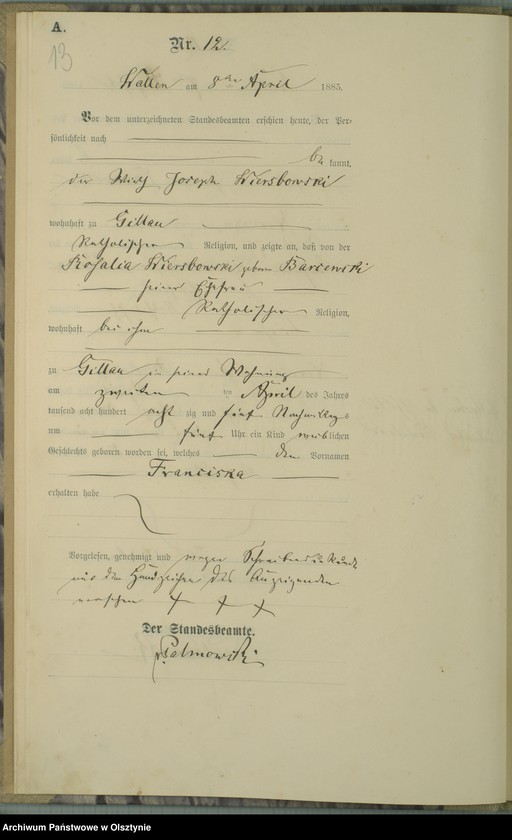 A.
13
Nr. 12.
Wallen am 8ten April 1885.
Vor dem unterzeichneten Standesbeamten erschien heute, der Per-
sönlichkeit nach
be kannt,
der Wirth Joseph Wiersbowski
wohnhaft zu Gillau
Katholischer Religion, und zeigte an, daß von der
Rosalia Wiersbowski geborne Barcewski
seiner Ehefrau
Katholischer Religion,
wohnhaft bei ihm
zu Gillau in seiner Wohnung
am zweiten ten April des Jahres
tausend acht hundert acht zig und fünf Nachmittags
um fünf Uhr ein Kind weiblichen
Geschlechts geboren worden sei, welches den Vornamen
Franciska
erhalten habe
Vorgelesen, genehmigt und wegen Schreibensunkunde
mit den Handzeichen des Anzeigenden
versehen + + +
Der Standesbeamte.
Palmowski
Archiwum Państwowe w Olsztynie